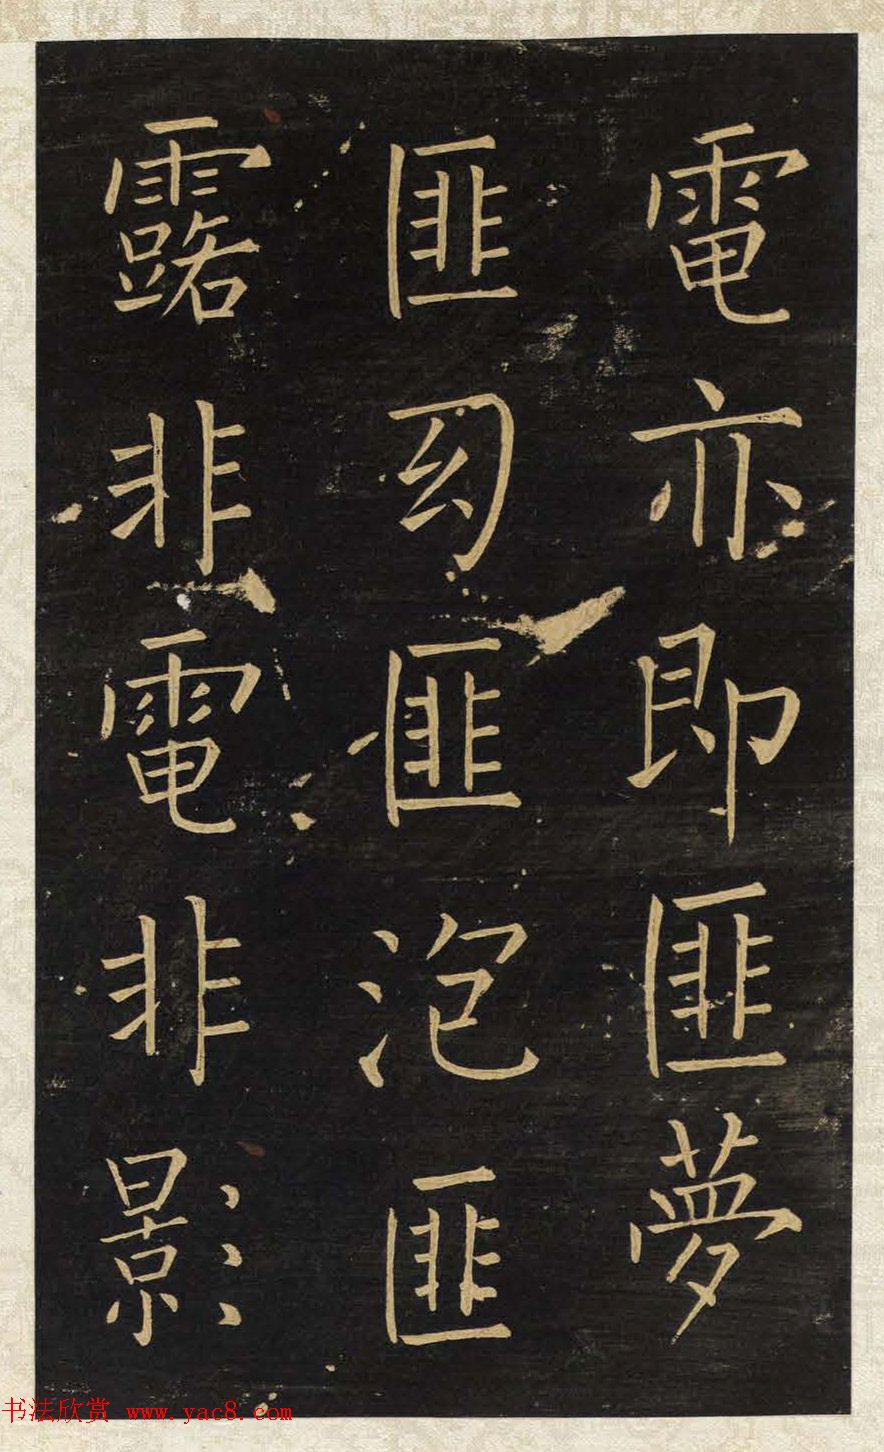 電亦即匪夢
匪幻匪泡匪
露非電非影
书法欣赏 www.yac8.com